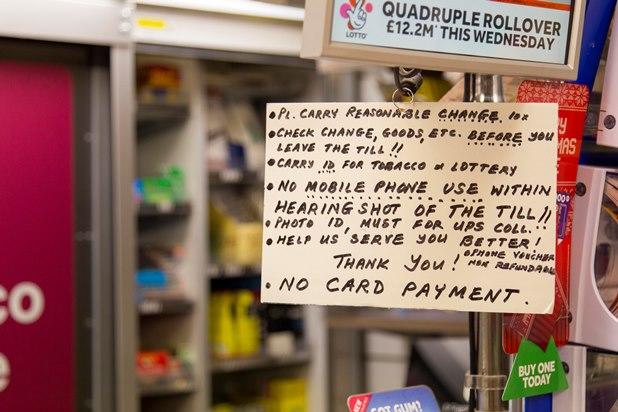 QUADRUPLE ROLLOVER
£12.2M* THIS WEDNESDAY
LOTTO
• PL. CARRY REASONABLE CHANGE, 10x
• CHECK CHANGE, GOODS, ETC. BEFORE YOU
LEAVE THE TILL !!
• CARRY ID FOR TOBACCO or LOTTERY
• NO MOBILE PHONE USE WITHIN
HEARING SHOT OF THE TILL !!
• PHOTO ID, MUST FOR UPS COLL.
• HELP US SERVE YOU BETTER!
• PHONE VOUCHER
NON REFUNDABLE
THANK YOU!
• NO CARD PAYMENT.
BUY ONE
TODAY
GOT GUM?
co
e